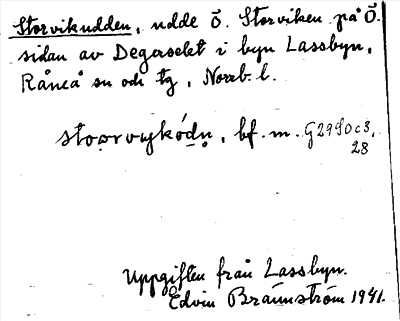 Storvikudden, udde Ö. Storviken på Ö.
sidan av Degerselet i byn Lassbyn,
Råneå sn och tg, Norrb. l.
bf. m. G2990c3,
28
Uppgiften från Lassbyn.
Edvin Brännström 1941.